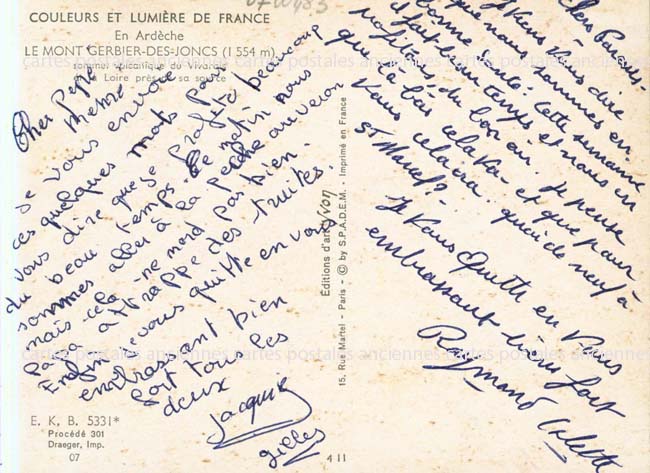 COULEURS ET LUMIÈRE DE FRANCE
En Ardèche
LE MONT GERBIER-DES-JONCS (1 554 m)
sommet volcanique du Vivarais
et la Loire près de sa source
Cher Pépé
Mémé
Je vous envoie
ces quelques mots pour
vous dire que je profite beaucoup
du beau temps. Ce matin nous
sommes aller à la pêche au veron
mais cela ne mord pas bien.
Papa attrappe des truites.
Enfin je vous quitte en vous
embrassant bien
fort tous les
deux
Jacquie
Gilles
E. K. B. 5331*
Procédé 301
Draeger, Imp.
07
4 11
Éditions d'art Yvon
15, Rue Martel - Paris - © by S.P.A.D.E.M. - Imprimé en France
Chers Parents.
Je viens vous dire
que nous sommes en
bonne santé. Cette semaine
il fait beau temps et nous en
profitons du bon air. Je pense
que là bas cela va et que pour
vous cela ira. quoi de neuf à
St Marcel?.
Je vous quitte en vous
embrassant bien fort
Raymond Colette
cartes postales anciennes cartes postales anciennes cartes postales
cartes postales anciennes cartes postales anciennes cartes postales